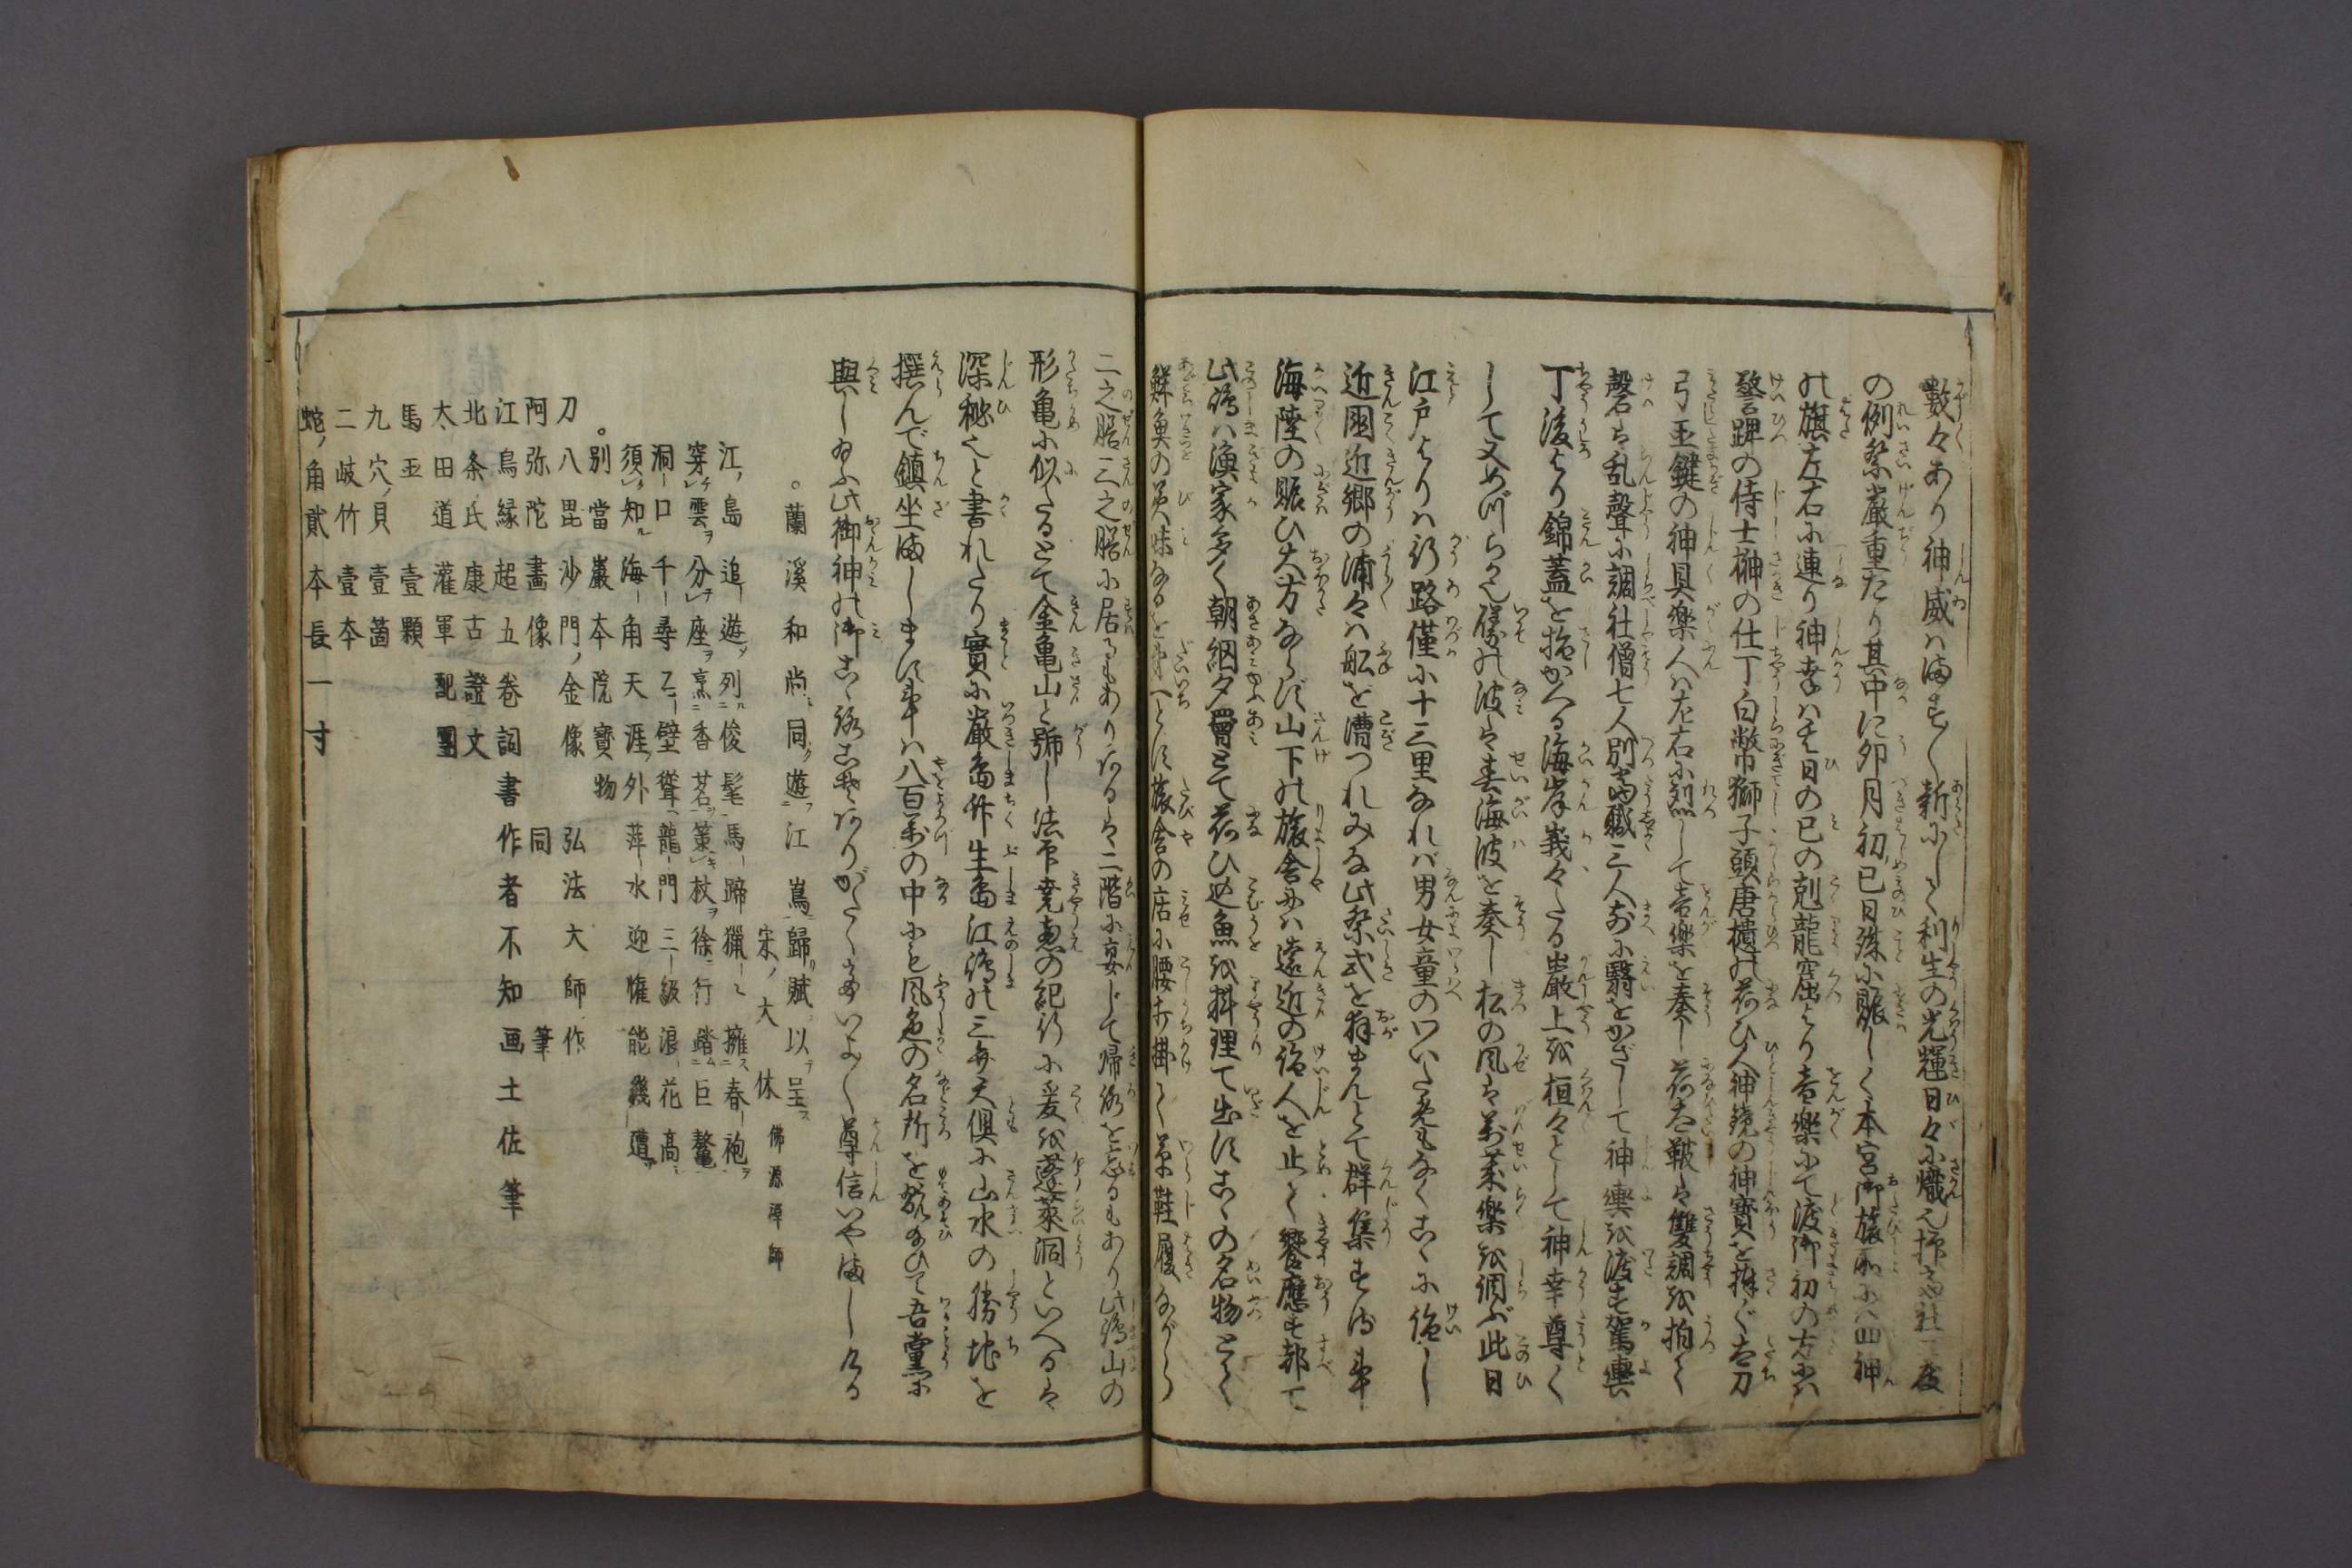 數々あり神威ハます〳〵新にして利生の光輝日々に熾也抑當社一度
の例祭嚴重たり其中に卯月初巳日殊に賑しく本宮御旅所にハ四神
の旗左右に連り神幸ハその日の巳の剋龍窟より音樂にて渡御初の方にハ
警蹕の侍士榊の仕丁白幣帛獅子頭唐櫃の荷ひ人神鏡の神寶を捧ぐ太刀
弓玉鍵の神具樂人ハ左右に烈して音樂を奏し荷太鞁は雙調を拍く
磬は乱聲に調社僧七人別當職三人前に翳をかざして神輿を渡す駕輿
丁後より錦蓋を指かくる海岸峩々たる巖上を桓々として神幸尊く
して又めづらかなり磯の波は青海波を奏し松の風は萬歳樂を調ぶ此日
江戸よりハ行路僅に十三里なれバ男女童のわいだめもなくこゝに詣し
近國近郷の浦々ハ舩を漕つれみな此祭式を拜まんとて群集する事
海陸の賑ひ大方ならず山下の旅舎にハ遠近の詣人を止て饗應す都て
此嶋ハ漁家多く朝網夕罾とて荷ひ込魚を料理て出すこゝの名物とて
鮮魚の美味なるを第一とす旅舎の店に腰打掛て草鞋履ながら
二之膳三之膳に居るもあり或るは二階に宴じて帰路を忘るもあり此嶋山の
形亀に似たるとて金亀山と號し法印尭恵の紀行に爰を蓬萊洞といへるは
深秘也と書れたり實に嚴嶋竹生嶋江嶋の三弁天倶に山水の勝地を
撰んで鎮坐ましますハ八百萬の中にも風色の名所を愁給ひて吾黨に
與し給ふ此御神の御こゝろこそありがたくて尊信いやましける
。蘭溪和尚同遊江嶌歸賦以呈 宋ノ大休 佛源禅師
江ノ島追遊列俊髦馬蹄獵々擁春袍
穿雲分座烹香茗策杖徐行踏巨鼇
洞口千尋石壁聳龍門三級浪花高
須知海角天涯外萍水迎懽能幾遭
。別當巖本院寶物
刀八毘沙門ノ金像 弘法大師作
阿弥陀畫像 同筆
江島縁起五巻詞書作者不知画土佐筆
北条氏康古證文
太田道灌軍配團
馬玉壹顆
九穴ノ貝壹箇
二岐竹壹本
蛇ノ角貳本長一寸